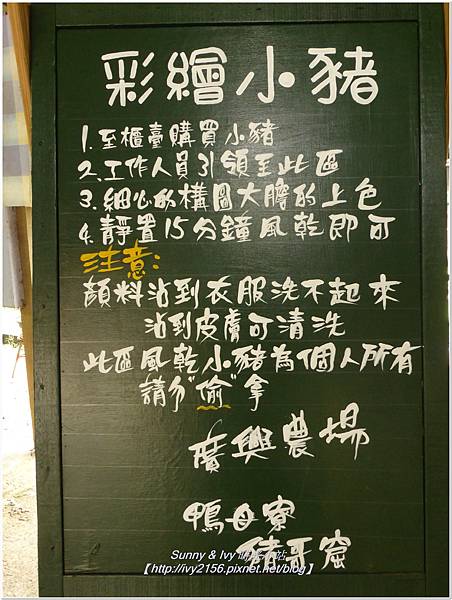 彩繪小豬
1.至櫃臺購買小豬
2.工作人員引領至此區
3.細心的構圖大膽的上色
4.靜置15分鐘風乾即可
注意:
顏料沾到衣服洗不起來
沾到皮膚可清洗
此區風乾小豬為個人所有
請勿"偷"拿
廣興農場
鴨母寮
豬哥窟
Sunny & Ivy
【http://ivy2156.pixnet.net/blog】